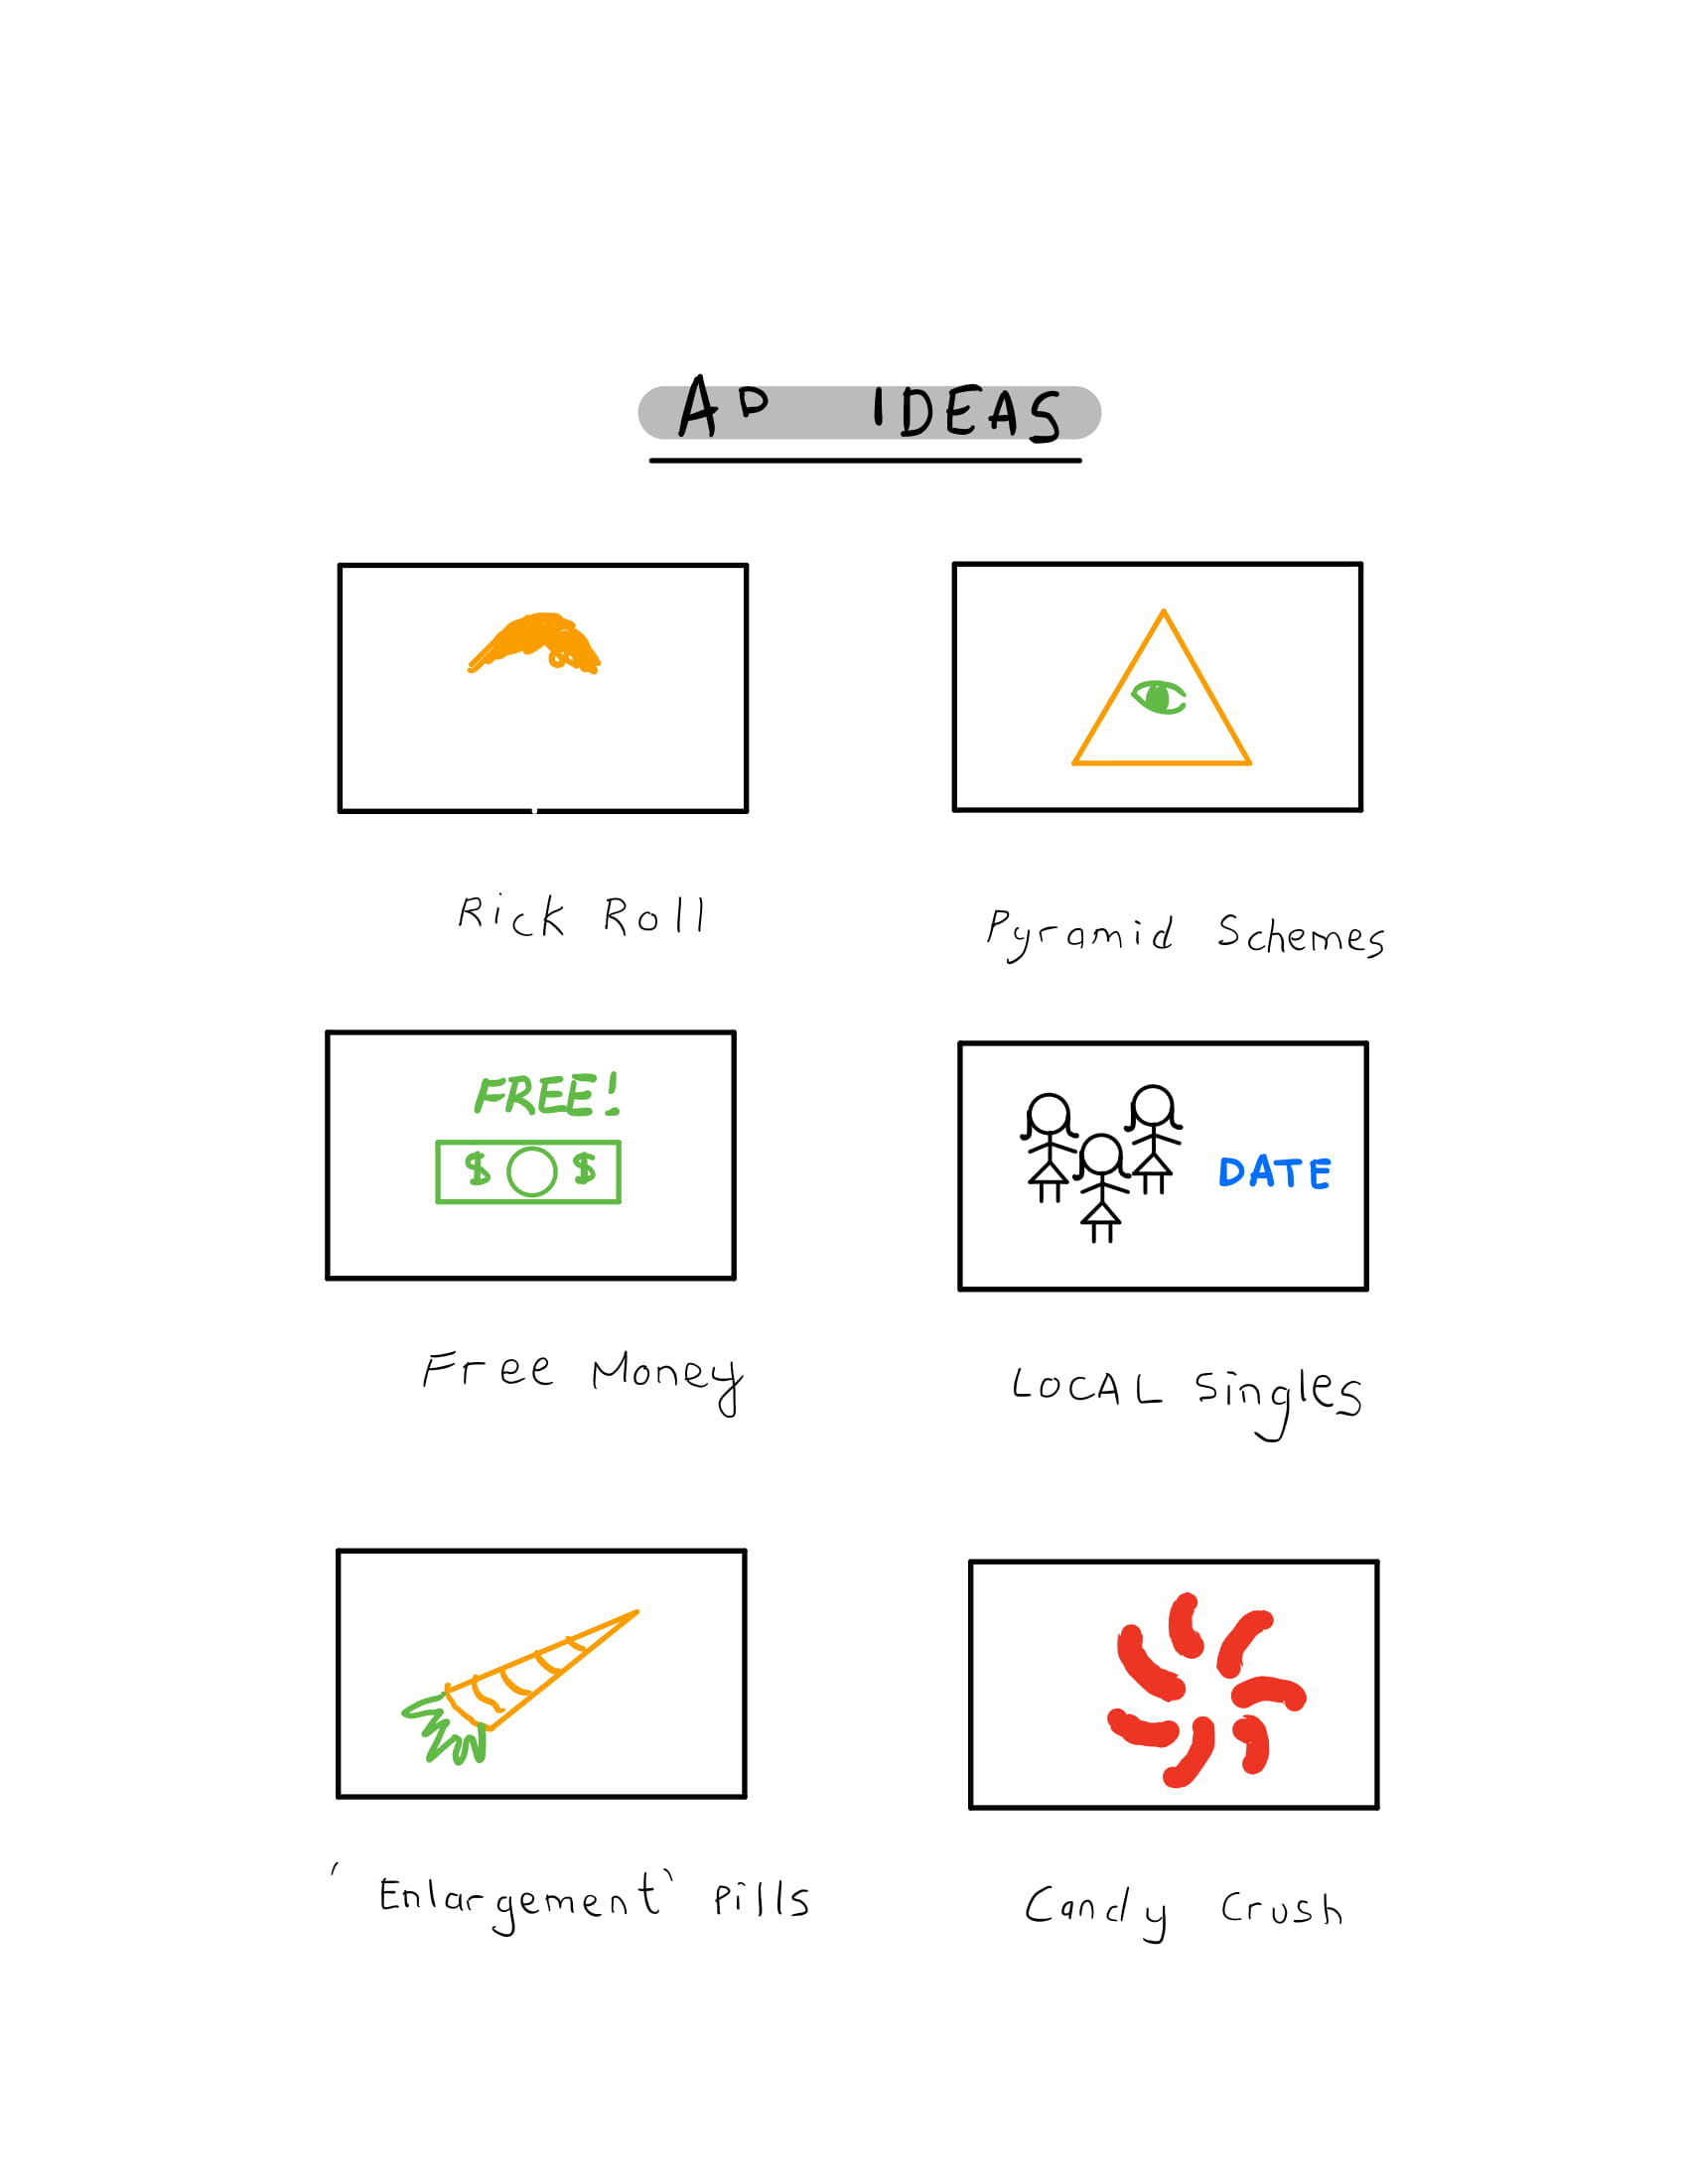 AD IDEAS
Rick Roll
Pyramid Schemes
FREE!
$ $
Free Money
DATE
LOCAL Singles
'Enlargement' Pills
Candy Crush